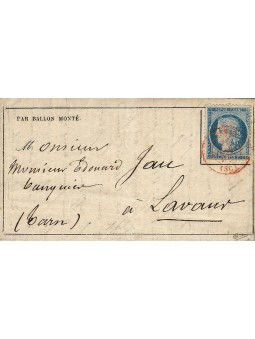 PAR BALLON MONTÉ.
Monsieur
Monsieur Edouard Jau
banquier
à Lavaur
(Tarn)